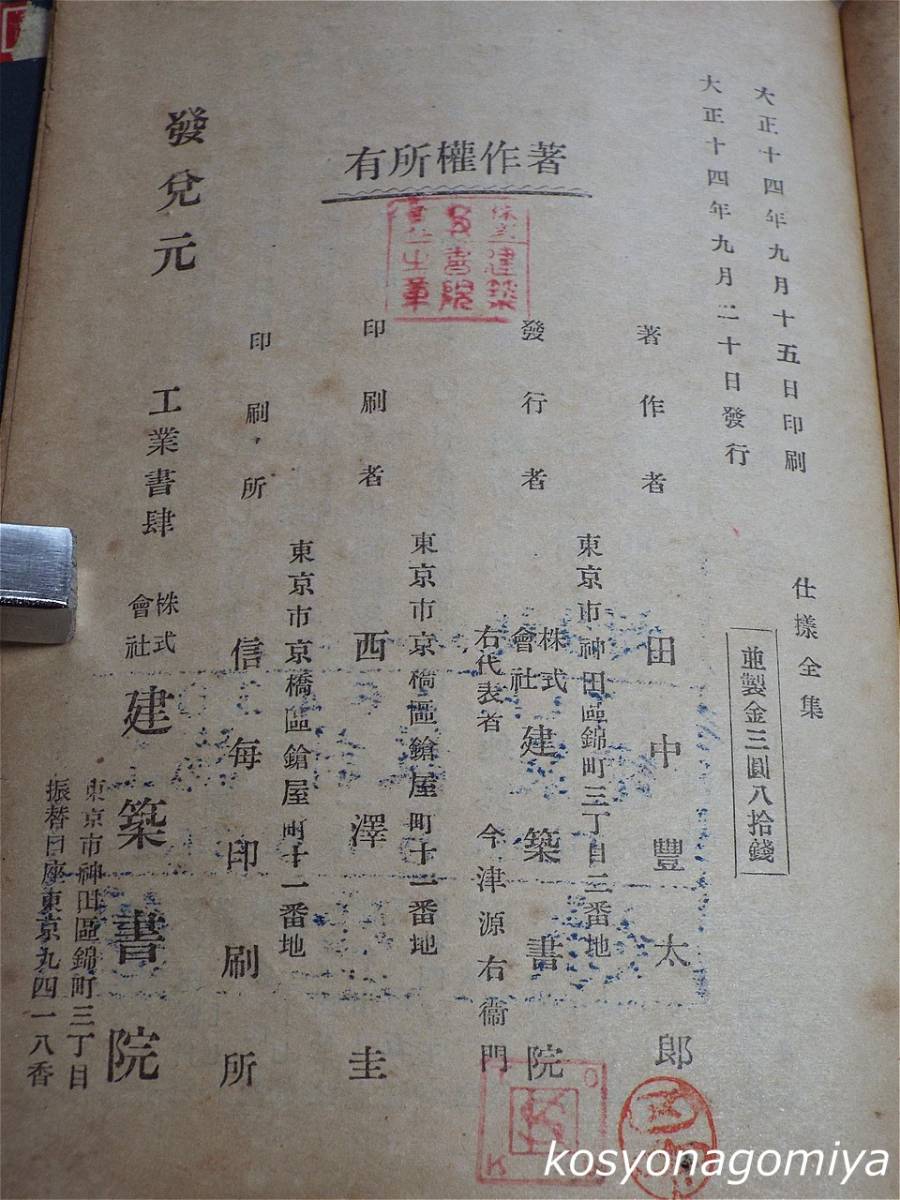 大正十四年九月十五日印刷
大正十四年九月二十日發行
仕樣全集
並製金三圓八拾錢
著作權所有
著作者
田中豐太郎
東京市神田區錦町三丁目二番地
發行者
株式會社建築書院
右代表者 今津源右衞門
東京市京橋區鎗屋町十一番地
印刷者
西澤圭
東京市京橋區鎗屋町十一番地
印刷所
信每印刷所
發兌元
工業書肆
株式會社建築書院
東京市神田區錦町三丁目
振替口座東京九四一八番
kosyonagomiya